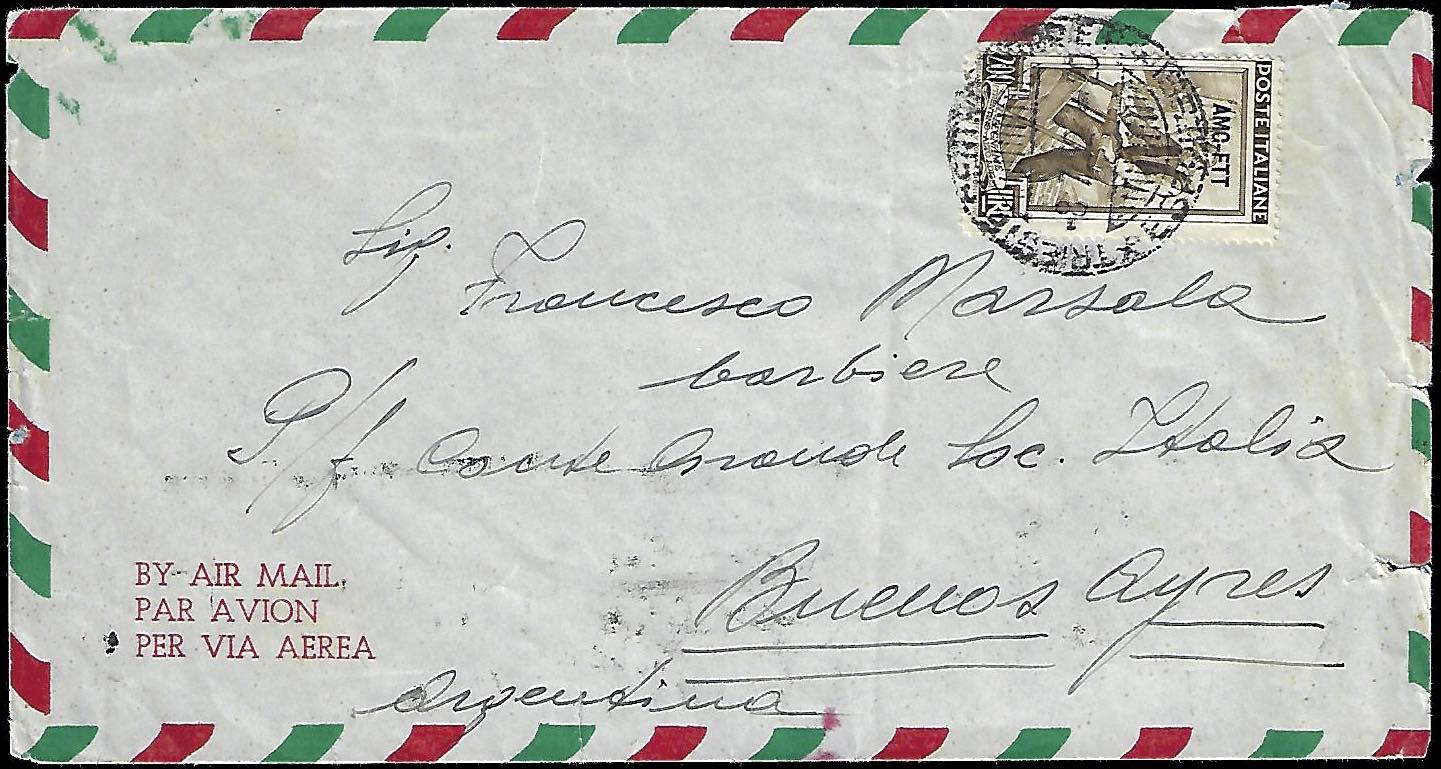 POSTE ITALIANE
AMG-FTT
200
LIRE
TRIESTE
Sig. Francesco Marsala
barbiere
P/f Conte Grande Soc. Italia
Buenos Ayres
Argentina
BY AIR MAIL
PAR AVION
PER VIA AEREA